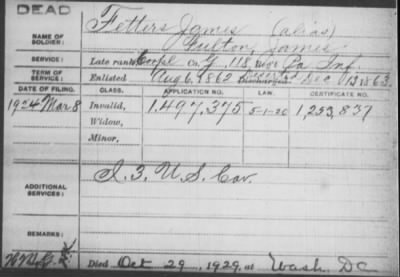 DEAD
NAME OF SOLDIER: Fetters James (alias)
Fulton, James
SERVICE: Late rank Corpl Co. G, 118 Reg't Pa. Inf.
TERM OF SERVICE: Enlisted Aug 6, 1862 Discharged Dec 13 1863.
DATE OF FILING. CLASS. APPLICATION NO. LAW. CERTIFICATE NO.
1924 Mar 8 Invalid, 1.497,375 5-1-20 1,253,837
Widow,
Minor,
ADDITIONAL SERVICES: I. 3. U.S. Cav.
REMARKS:
Died Oct 29, 1929, at Wash. DC